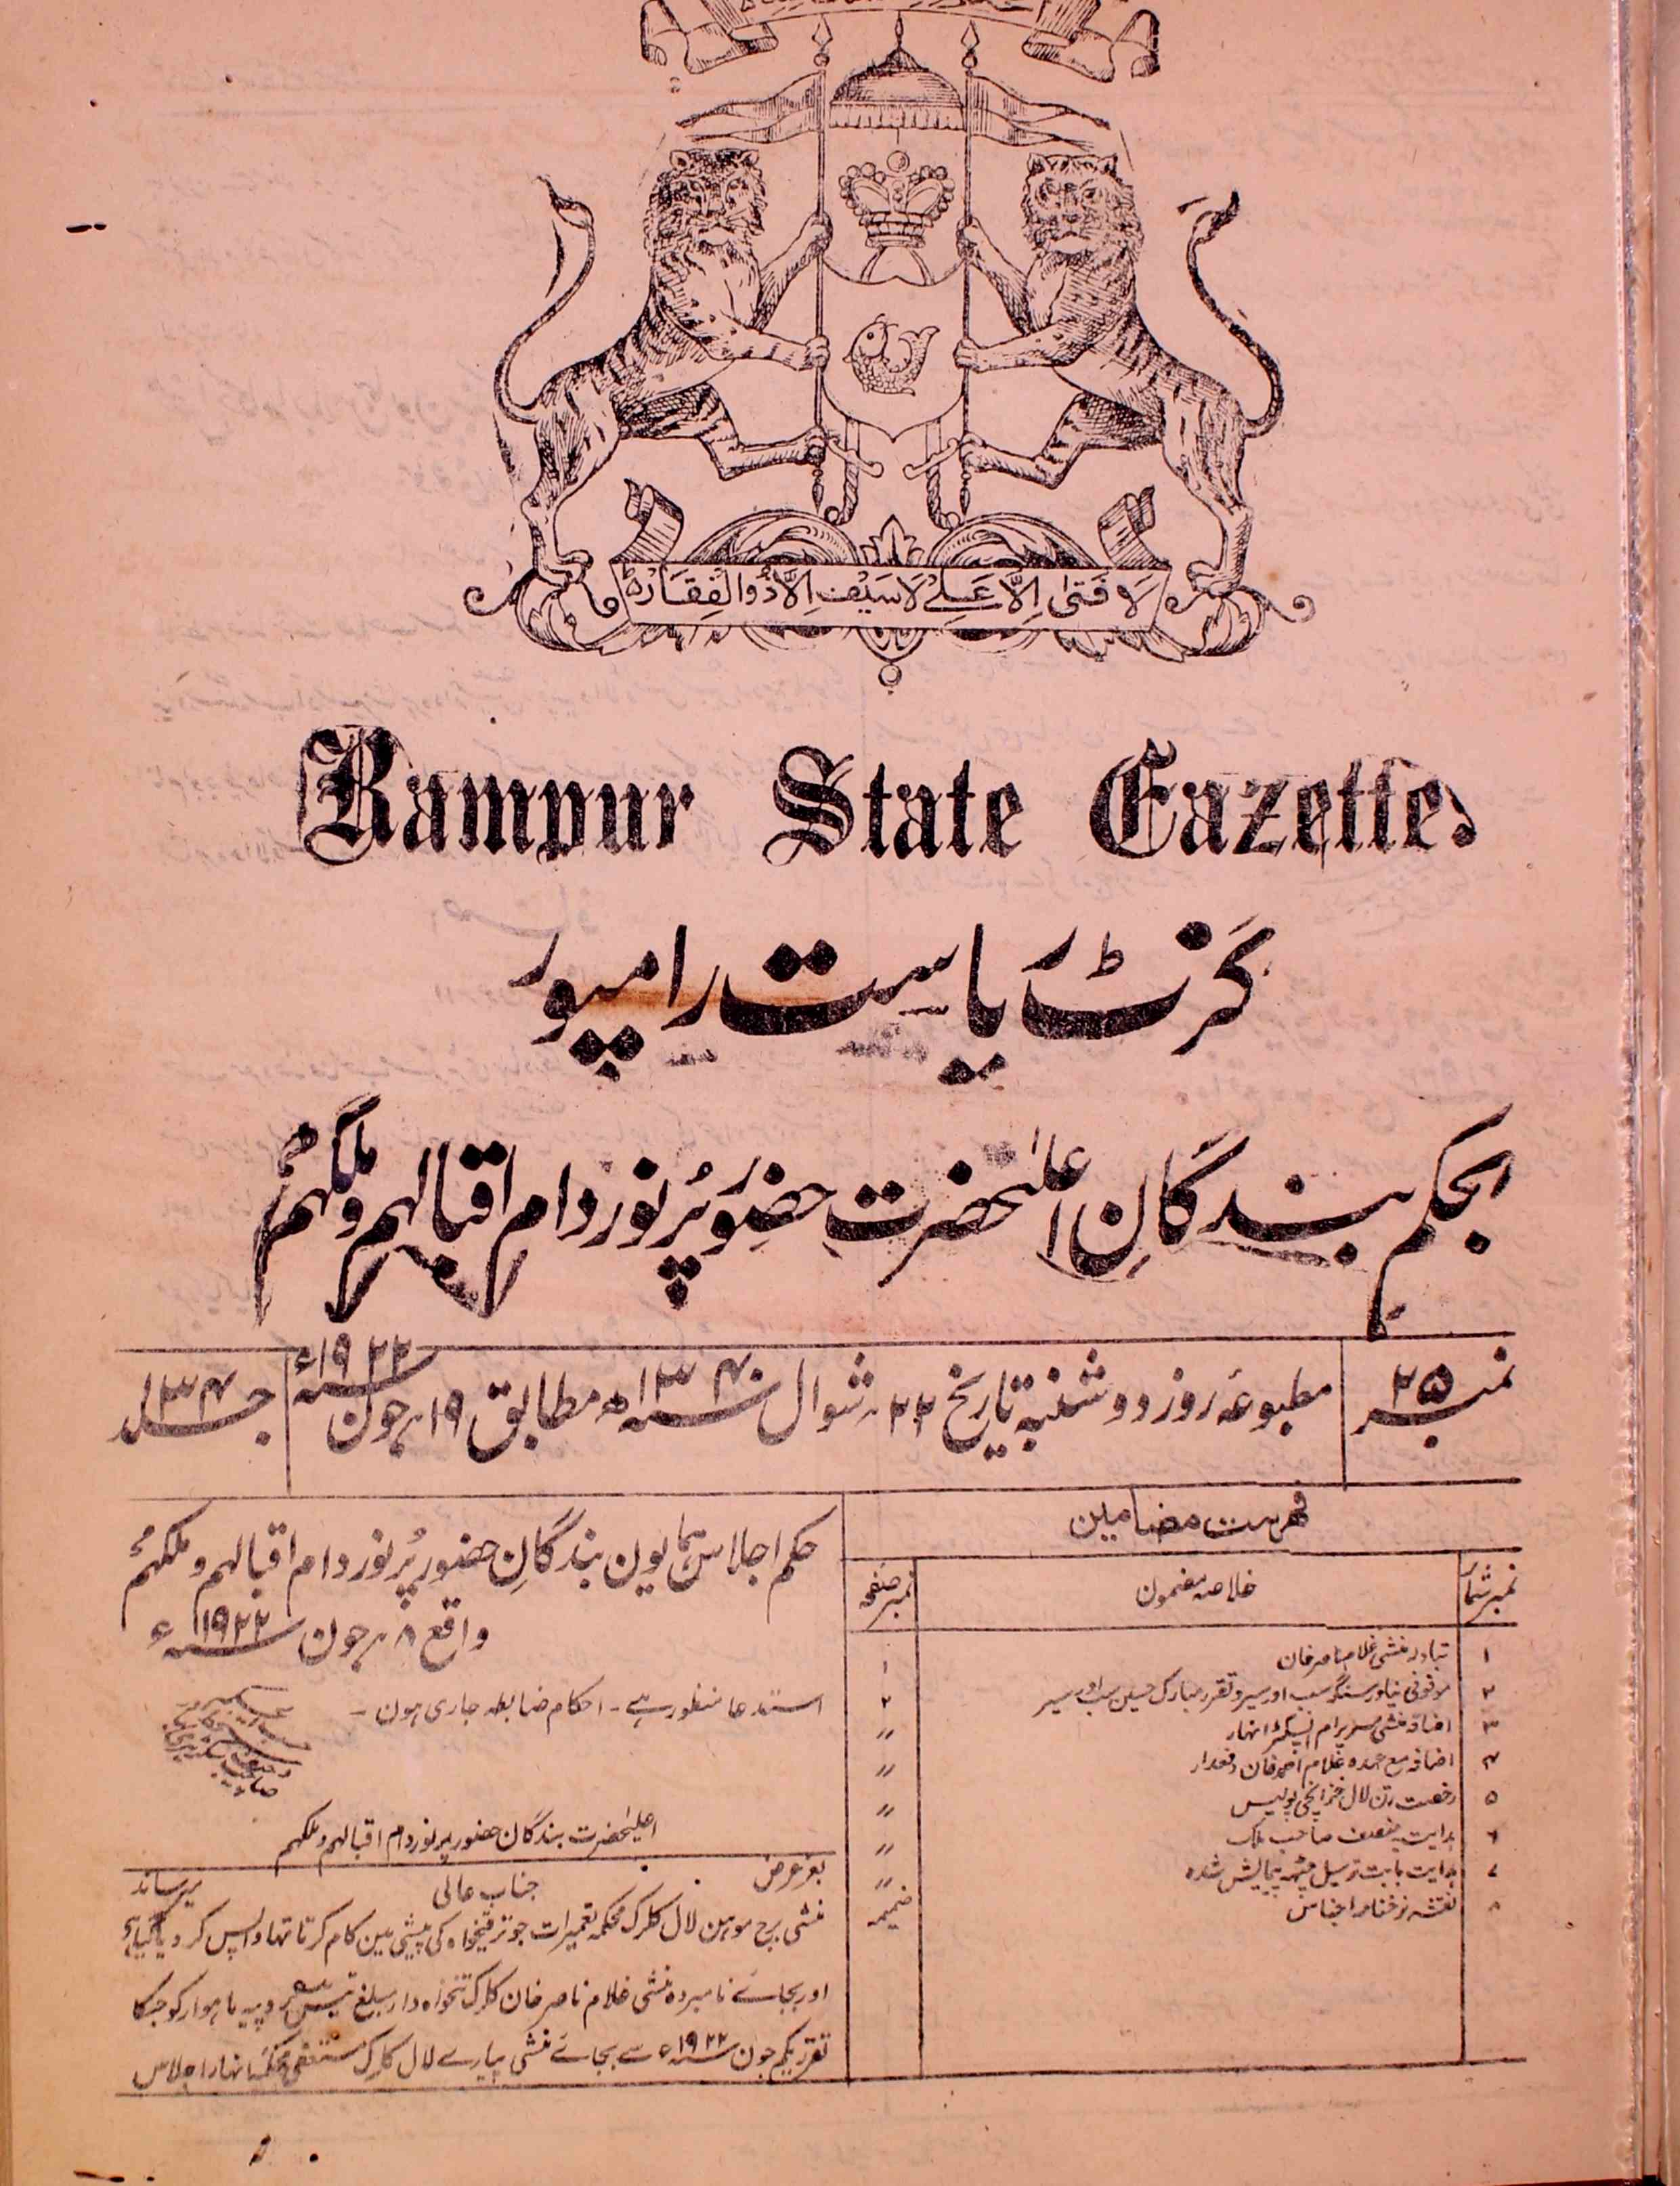 لا فتىٰ اِلّا عَلی لَا سَیْف اِلّا ذُو الْفِقَار
Rampur State Gazette.
گزٹ ریاست رامپور
بحکم بندگانِ اعلیٰحضرت حضور پُرنور دام اقبالہم و ملکہم
نمبر ۲۵
مطبوعہ روز دوشنبہ تاریخ ۲۲ شوال سنہ ۱۳۴۰ھ مطابق ۱۹ جون سنہ ۱۹۲۲ء
جلد ۳۴
فہرست مضامین
نمبر شمار خلاصہ مضمون نمبر صفحہ
۱ تبادلہ منشی غلام ناصر خان ۱
۲ موقوفی سنگہ سب اورسیر و تقرر مبارک حسین سب اورسیر ۲
۳ اضافہ منشی رام انسپکٹر انہار 〃
۴ اضافہ مع عہدہ غلام احمد خان دفعدار 〃
۵ رخصت رتن لال خزانچی پولیس 〃
۶ ہدایت منصف صاحب ملک 〃
۷ ہدایت بابت ترسیل پیمایش شدہ 〃
۸ نقشہ نرخنامہ اجناس ضمیمہ
حکم اجلاس ہمایون بندگانِ حضور پُرنور دام اقبالہم و ملکہم
واقع ۸ جون سنہ ۱۹۲۲ء
استدعا منظور ہے ۔ احکام ضابطہ جاری ہون ۔
اعلیٰحضرت بندگان حضور پرنور دام اقبالہم و ملکہم
بعز عرض میرساند
جناب عالی
منشی برج موہن لال کلرک محکمہ تعمیرات جو ترقیخواہ کی پیشی مین کام کرتا تہا واپس کر دیا گیا ہے
اور بجائے نامبردہ منشی غلام ناصر خان کلرک تنخواہ دار مبلغ تیس روپیہ ماہوار کو جسکا
تقرر یکم جون سنہ ۱۹۲۲ء سے بجائے منشی پیارے لال کلرک مستعفی محکمہ انہار اجلاس